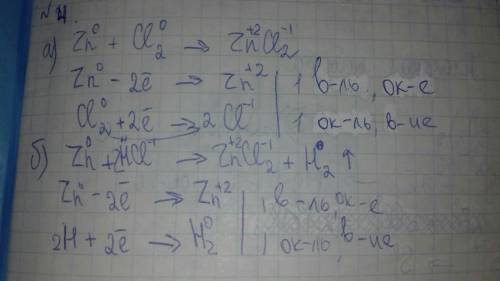 №4.
а) Zn⁰ + Cl₂⁰ → Zn⁺²Cl₂⁻¹
Zn⁰ - 2ē → Zn⁺² | 1 в-ль, ок-е
Cl₂⁰ + 2ē → 2Cl⁻¹ | 1 ок-ль, в-ие
б) Zn⁰ + 2HCl⁻¹ → Zn⁺²Cl₂⁻¹ + H₂⁰ ↑
Zn⁰ - 2ē → Zn⁺² | 1 в-ль, ок-е
2H + 2ē → H₂⁰ | 1 ок-ль, в-ие